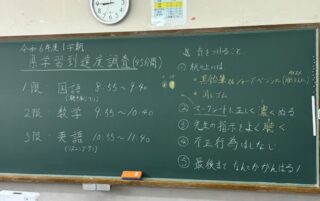 令和6年度1学期
県学習到達度調査(45分間)
1限・国語 8:55〜9:40
2限・数学 9:55〜10:40
3限・英語 10:55〜11:40
(リスニングあり)
気をつけること
① 机の上には
・黒鉛筆 シャープペンシル
・消しゴム
② マークシートに正しく濃くぬる
③ 先生の指示をよく聴く
④ 不正行為はしない
⑤ 最後まで がんばる!